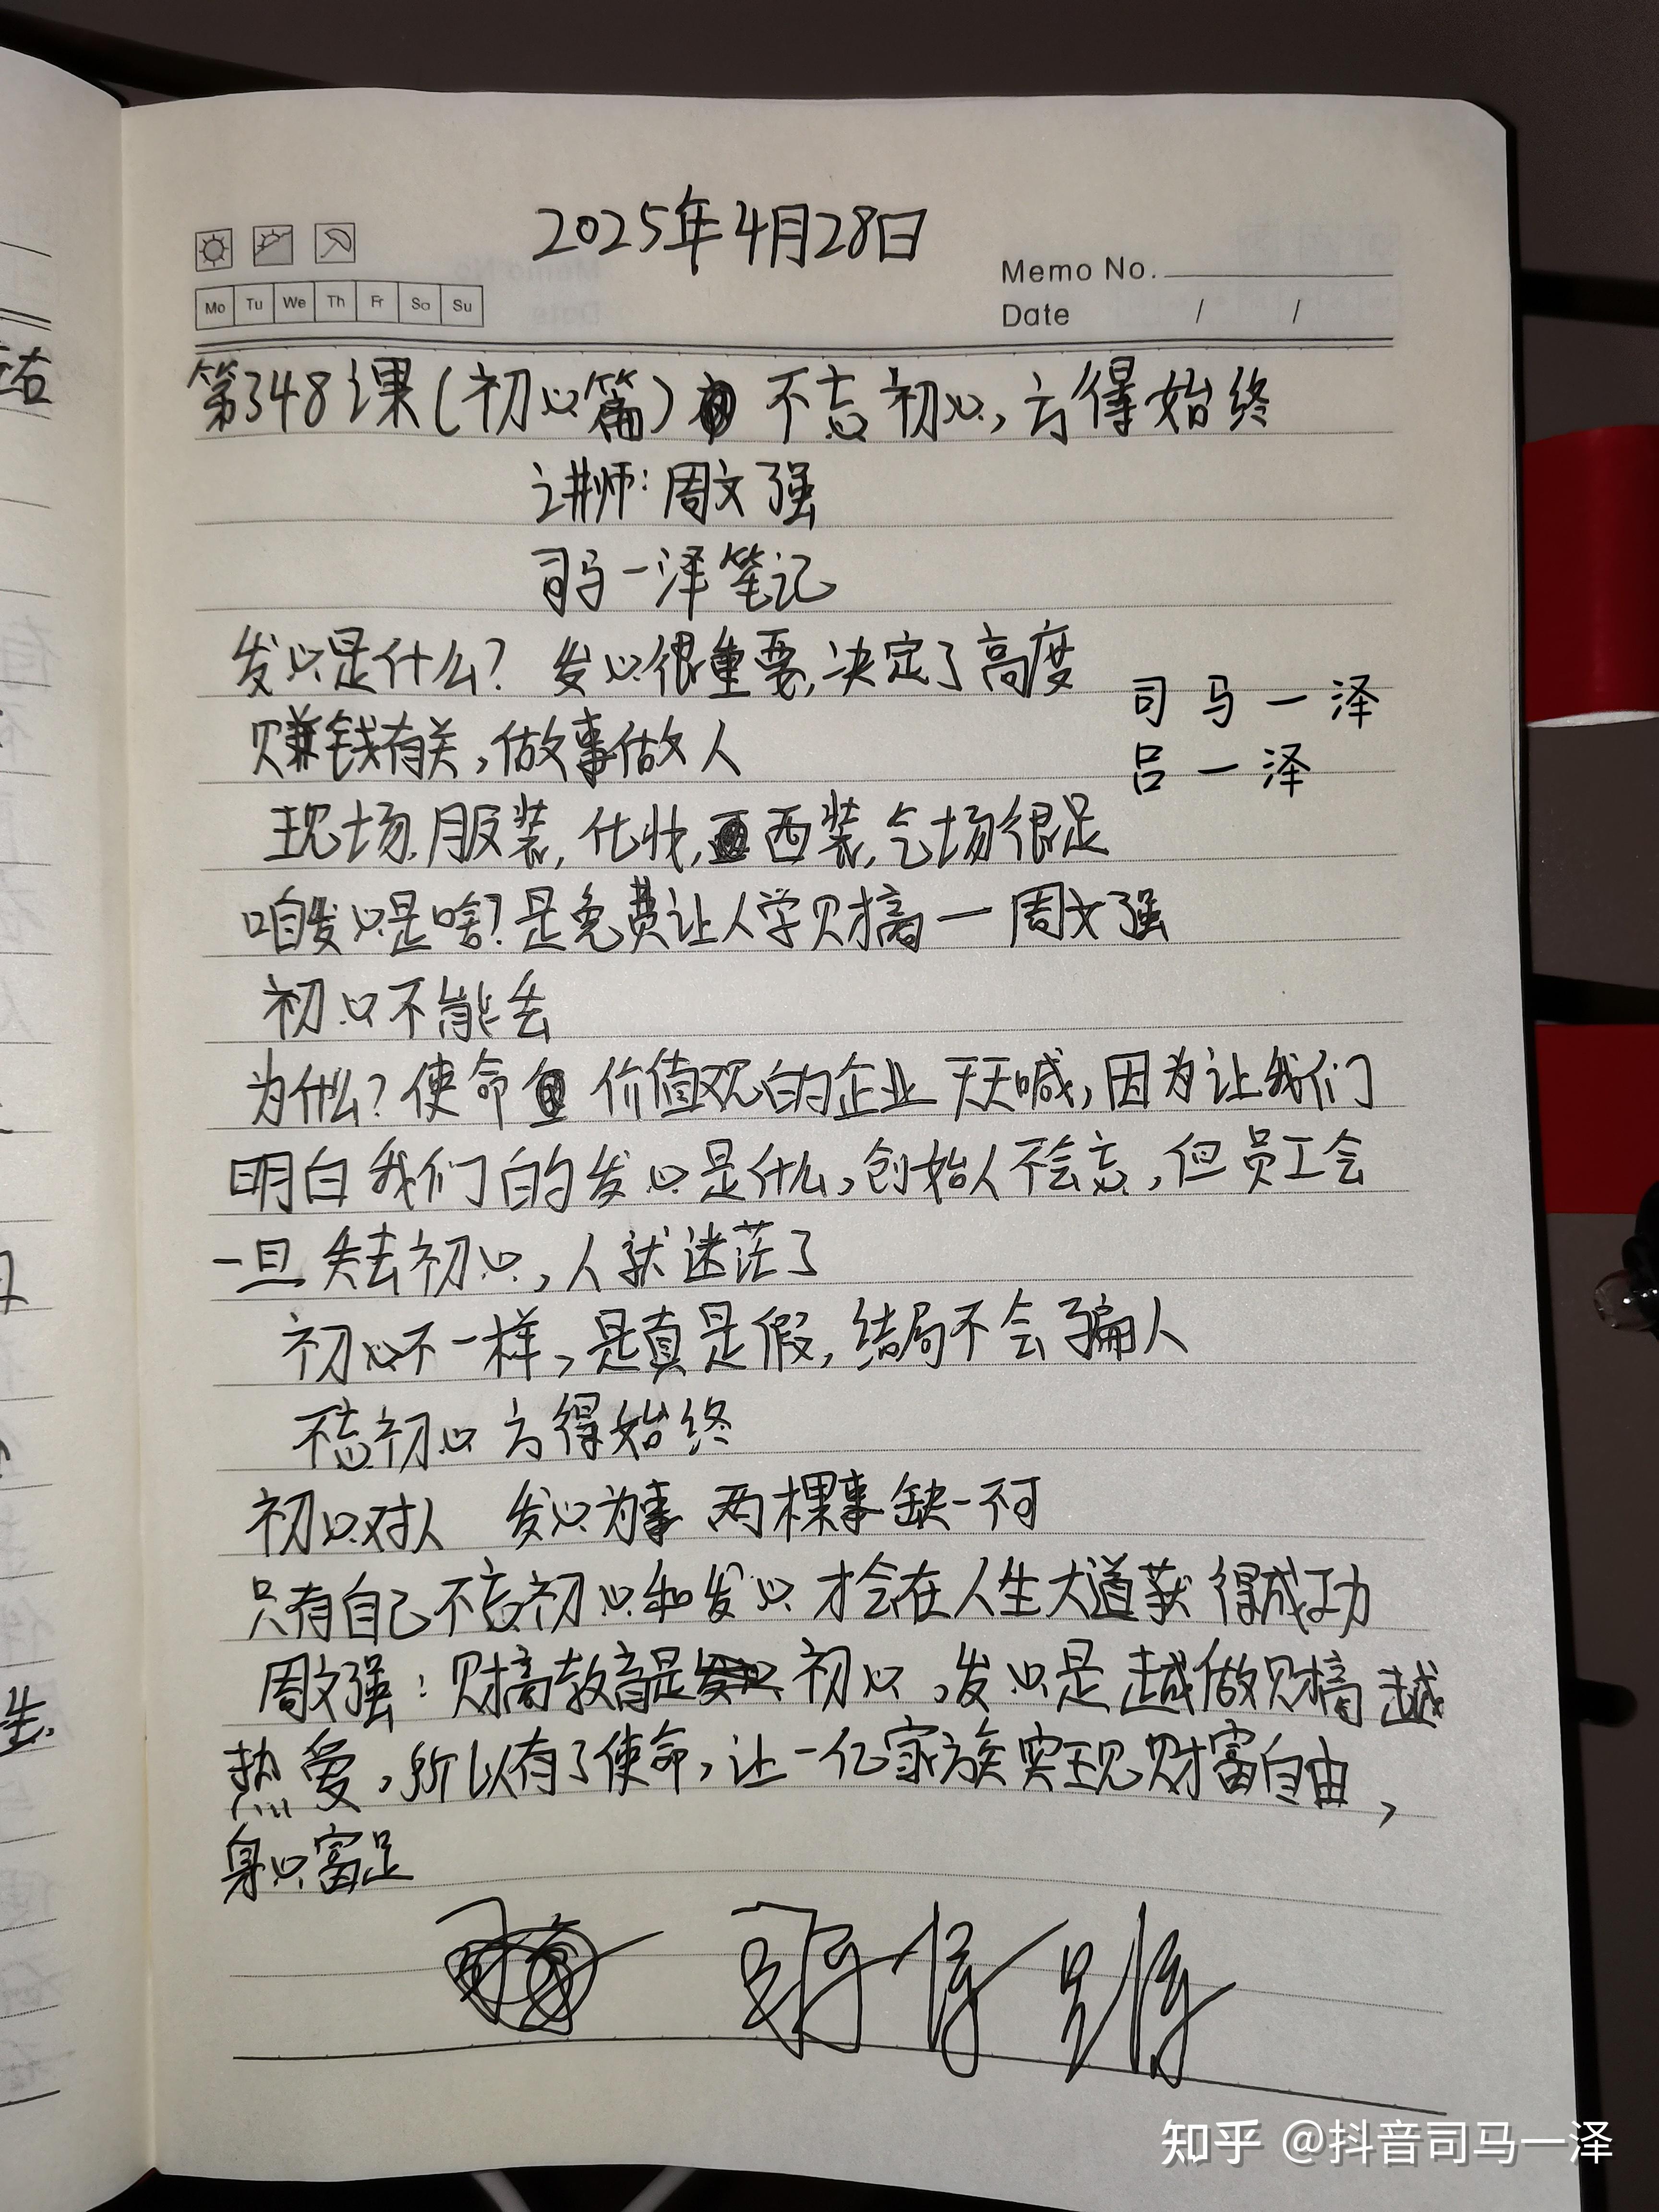 2025年4月28日
Memo No.
Mo Tu We Th Fr Sa Su
Date / /
第348课(初心篇) 不忘初心,方得始终
讲师:周文强
司马一泽笔记
发心是什么? 发心很重要,决定了高度
司马一泽
赚钱有关,做事做人
吕一泽
现场,服装,化妆,西装,气场很足
咱发心是啥?是免费让人学财商一周文强
初心不能丢
为什么?使命 价值观的企业天天喊,因为让我们
明白我们的发心是什么,创始人不会忘,但员工会
一旦失去初心,人就迷茫了
初心不一样,是真是假,结局不会骗人
不忘初心方得始终
初心对人 发心为事 两棵事缺一不可
只有自己不忘初心和发心才会在人生大道获得成功
周文强:财商教育是初心,发心是越做财商越
热爱,所以有了使命,让一亿家族实现财富自由,
身心富足
知乎 @抖音司马一泽